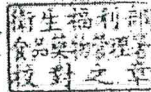 衛生福利部
食品藥物管理署
設計之章